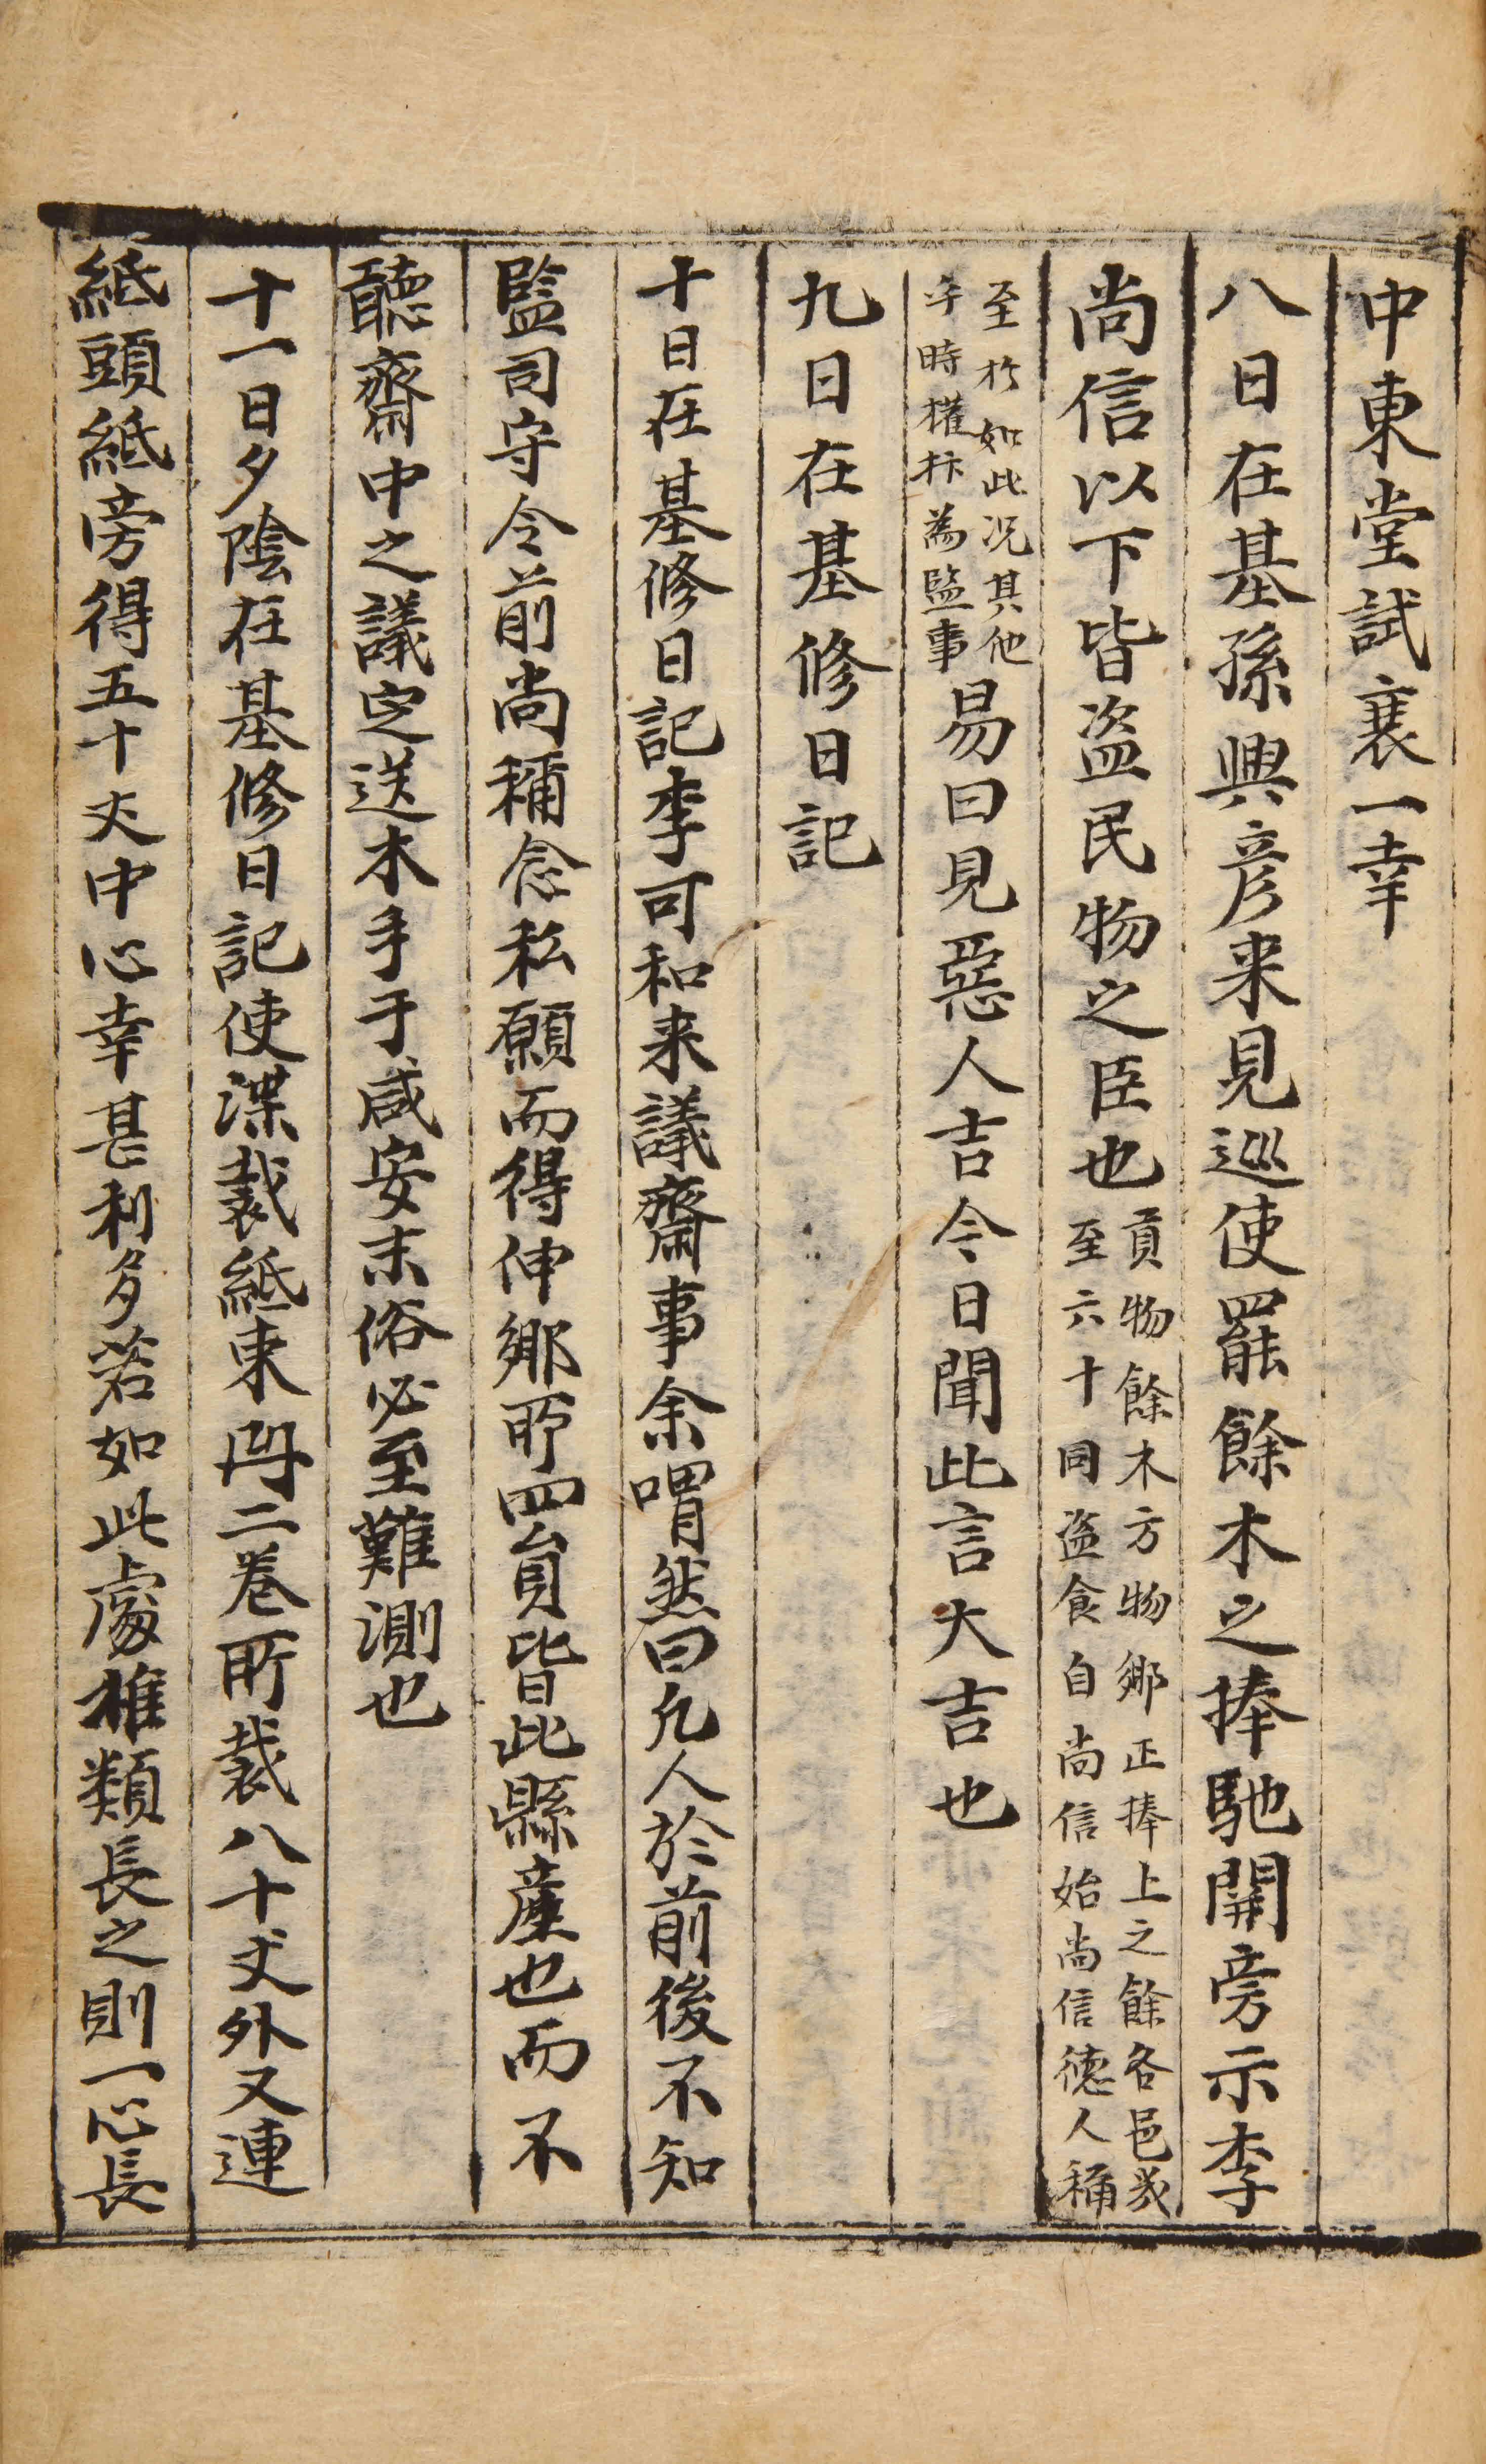 中東堂試襄一幸
八日在基孫興彦来見巡使罷餘木之捧馳關旁示李
尚信以下皆盗民物之臣也貢物餘木方物鄉正捧上之餘各邑或
至六十同盗食自尚信始尚信德人稱
至於如此况其他
時權為監事易曰見惡人吉今日聞此言大吉也
九日在基修日記
十日在基修日記李可和来議齋事余喟然曰凡人於前後不知
監司守令前尚稱念私願而得伸鄉所四員皆此縣產也而不
聽齋中之議定送木手于咸安末俗必至難測也
十一日夕陰在基修日記使渫裁紙束冊二卷所裁八十丈外又連
紙頭紙旁得五十丈中心幸甚利多若如此處推類長之則一心長